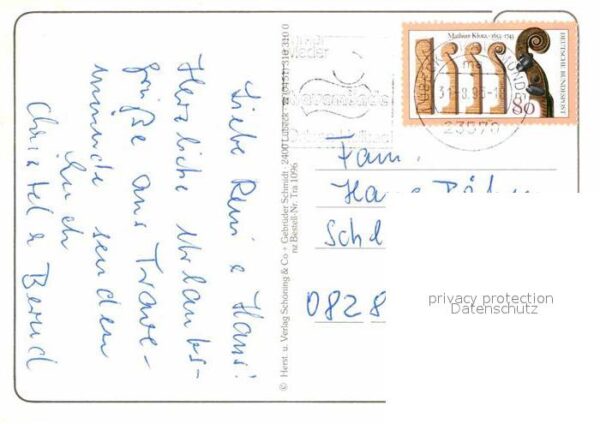 Liebe Reni & Hans!
Herzliche Urlaubs-
grüße aus Trave-
münde senden
Euch
Christel & Bernd
© Herst. u. Verlag Schöning & Co + Gebrüder Schmidt · 2400 Lübeck · ☎ (04 51) 3 10 31 0
nz Bestell-Nr. Tra 1096
Mathias Klotz · 1653-1743
DEUTSCHE BUNDESPOST
80
31.-8.93-18
23570
Fam.
Hans
Sch
0828
privacy protection
Datenschutz